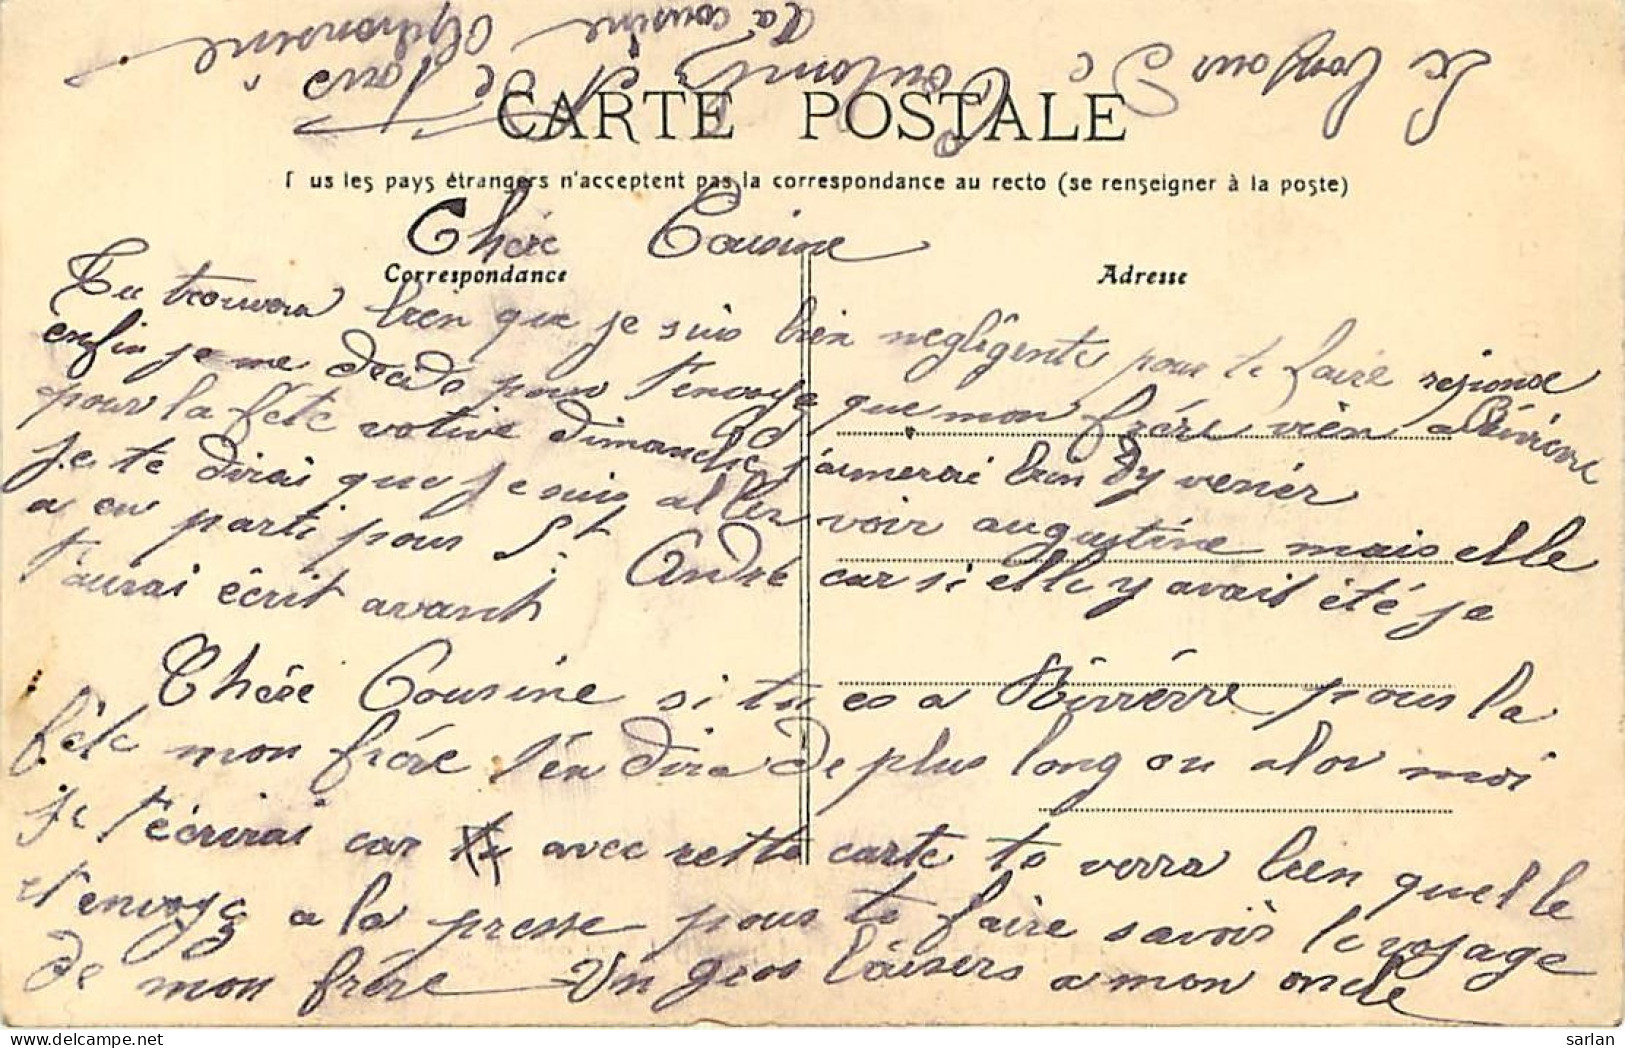 CARTE POSTALE
us les pays étrangers n'acceptent pas la correspondance au recto (se renseigner à la poste)
Chère Cousine
Correspondance
Adresse
Tu trouvera bien que je suis bien negligente pour te faire reponse
enfin je me decide pour t'envoye que mon frère vien a Rivierre
pour la fête votive dimanche j'aimerai bien dy venir
je te dirai que je suis aller voir augustine mais elle
a eu parti pour St André car si elle y avait été je
t'aurai écrit avant
Chère Cousine si tu es a Rivierre pour la
fête mon frère t'en dira de plus long ou alor moi
je t'écrirai car avec cette carte tu verra bien quel le
t'envoyé a la presse pour te faire savoir le voyage
de mon frère Un gros baisers a mon oncle
et a tous
Ta cousine Alphonsine
sarlan